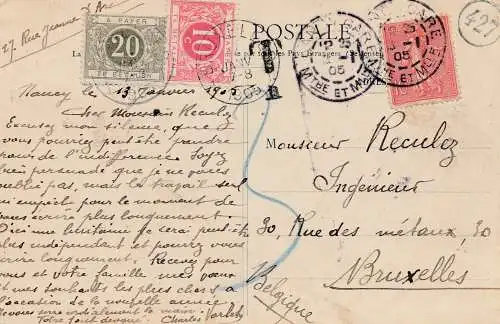 27, Rue Jeanne d'Arc
POSTALE
421
A PAYER
20
TE BETALEN
10
T
1905
NANCY GARE
05
MTHE ET MLLE
Nancy le 13 Janvier 1905
Cher Monsieur Reculez
Excusez mon silence, que
vous pourriez peut être prendre
pour de l'indifférence. Soyez
bien persuadé que je ne vous
oublie pas, mais le travail seul
m'empêche pour le moment de
vous écrire plus longuement.
D'ici une huitaine je serai peut être
plus indépendant et pourrai vous
écrire longuement. Recevez pour
vous et votre famille mes vœux
et mes souhaits les plus chers à
l'occasion de la nouvelle année
Votre tout dévoué: Charles
Monsieur Reculez
Ingénieur
30, Rue des métaux, 30
Bruxelles
Belgique